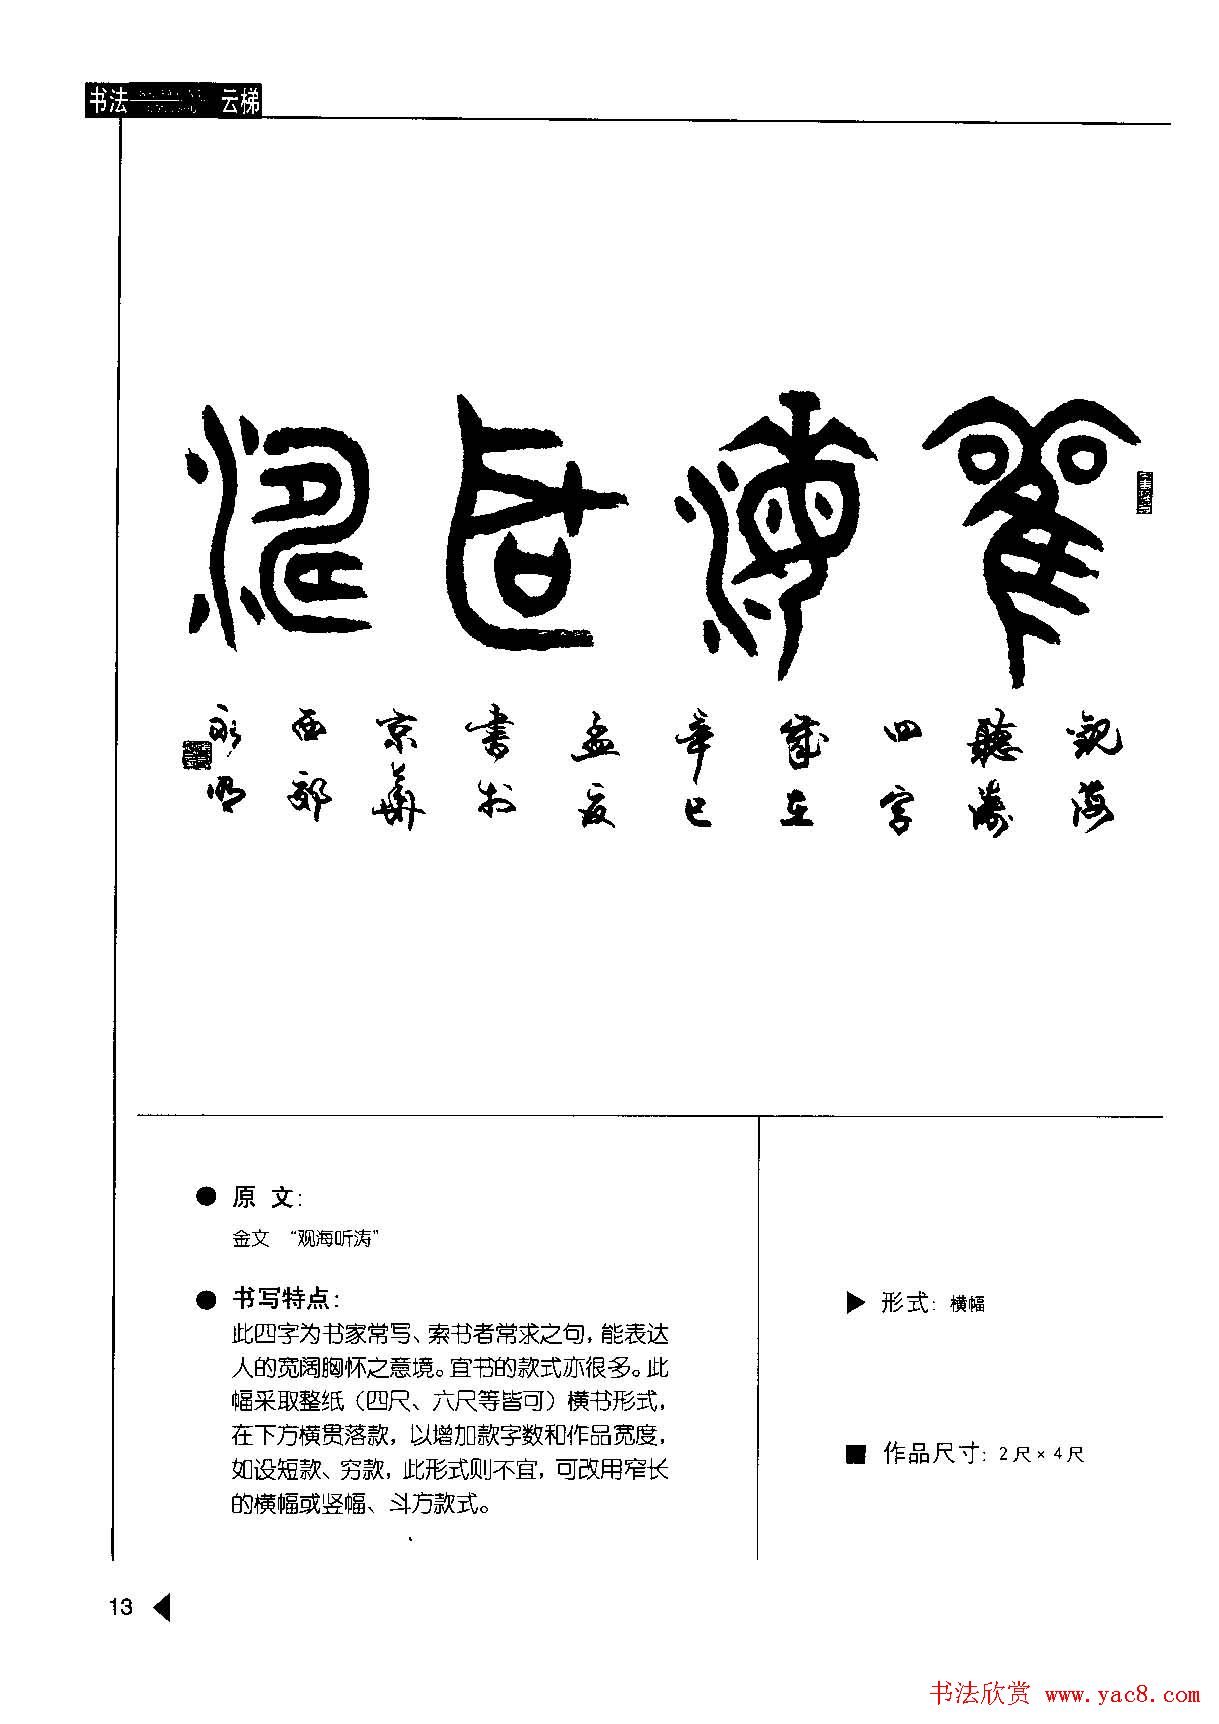 书法——云梯
观海听涛
觀海
聽濤
四字
歲在
辛巳
孟夏
書於
京華
西郊
永明
● 原 文：
金文 “观海听涛”
● 书写特点：
此四字为书家常写、索书者常求之句，能表达
人的宽阔胸怀之意境。宜书的款式亦很多。此
幅采取整纸（四尺、六尺等皆可）横书形式，
在下方横贯落款，以增加款字数和作品宽度，
如设短款、穷款，此形式则不宜，可改用窄长
的横幅或竖幅、斗方款式。
▶ 形式：横幅
■ 作品尺寸：2尺×4尺
13 ◀
书法欣赏 www.yac8.com